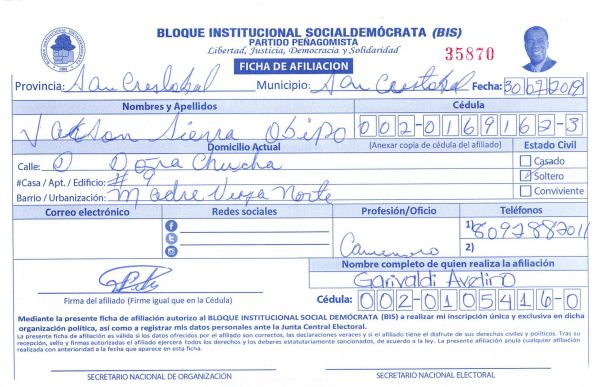 BLOQUE INSTITUCIONAL SOCIALDEMÓCRATA (BIS)
PARTIDO PEÑAGOMISTA
Libertad, Justicia, Democracia y Solidaridad
35870
FICHA DE AFILIACION
Provincia: San Cristobal Municipio: San Cristobal Fecha: 30072019
Nombres y Apellidos Cédula
Sierra Obispo 002-0169162-3
Domicilio Actual (Anexar copia de cédula del afiliado) Estado Civil
Calle: Doña Chucha
Casado
#Casa / Apt. / Edificio: #9
Soltero
Barrio / Urbanización: Madre Vieja Norte
Conviviente
Correo electrónico Redes sociales Profesión/Oficio Teléfonos
1) 8092882011
2)
Nombre completo de quien realiza la afiliación
Garivaldi Avelino
Firma del afiliado (Firme igual que en la Cédula)
Cédula: 002-0105416-0
Mediante la presente ficha de afiliación autorizo al BLOQUE INSTITUCIONAL SOCIAL DEMÓCRATA (BIS) a realizar mi inscripción única y exclusiva en dicha
organización política, así como a registrar mis datos personales ante la Junta Central Electoral.
La presente ficha de afiliación es válida si los datos ofrecidos por el afiliado son correctos, las declaraciones veraces y si el afiliado tiene el disfrute de sus derechos civiles y políticos. Tras su
recepción, sello y firmas autorizadas el afiliado ejercerá todos los derechos y los deberes estatutariamente sancionados, de acuerdo a la ley. La presente afiliación anula cualquier afiliación
realizada con anterioridad a la fecha que aparece en esta ficha.
SECRETARIO NACIONAL DE ORGANIZACIÓN SECRETARIO NACIONAL ELECTORAL